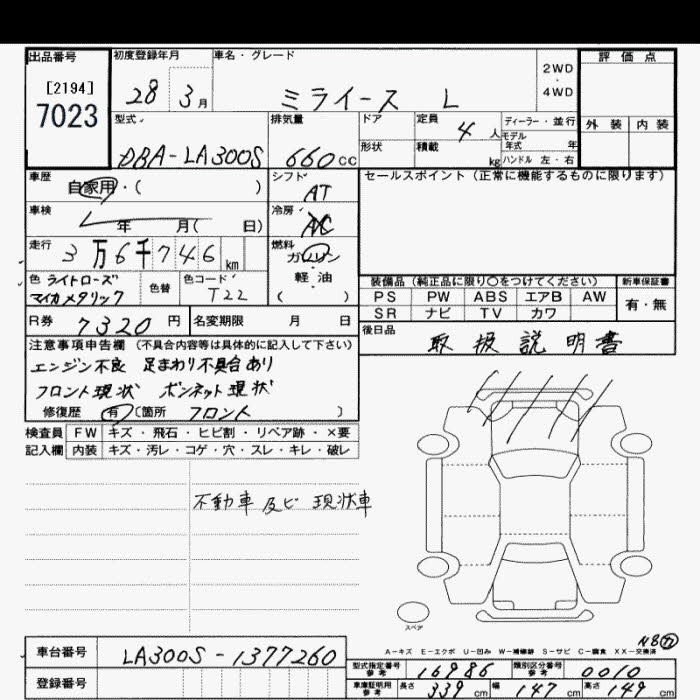 出品番号 初度登録年月 車名・グレード 評価点
[2194] 28 3月 ミライース L 2WD・4WD
7023 外装 内装
型式 排気量 ドア 定員 4人 ディーラー・並行
DBA-LA300S 660cc 形状 積載 kg モデル年式 年
ハンドル 左・右
車歴 自家用・( ) シフト AT セールスポイント(正常に機能するものに限ります)
車検 年 月( 日) 冷房 AC
走行 3万6千746km 燃料 ガソリン
軽・油
( )
色 ライトローズ 色替 色コード
マイカメタリック T22
装備品(純正品に限り○をつけてください) 新車保証書
PS PW ABS エアB AW 有・無
SR ナビ TV カワ
R券 7320円 名変期限 月 日 後日品 取扱説明書
注意事項申告欄(不具合内容等は具体的に記入して下さい)
エンジン不良 足まわり不具合あり
フロント現状 ボンネット現状
修復歴 有(箇所 フロント )
検査員 FW キズ・飛石・ヒビ割・リペア跡・×要
記入欄 内装 キズ・汚レ・コゲ・穴・スレ・キレ・破レ
不動車 及ビ 現状車
スペア
N8カ
A-キズ E-エクボ U-凹み W-補修跡 S-サビ C-腐食 XX-交換済
車台番号 LA300S-1377260 型式指定番号 参考 16986 類別区分番号 参考 0010
登録番号 車庫証明用 参考 長さ 339cm 幅 147cm 高さ 149cm